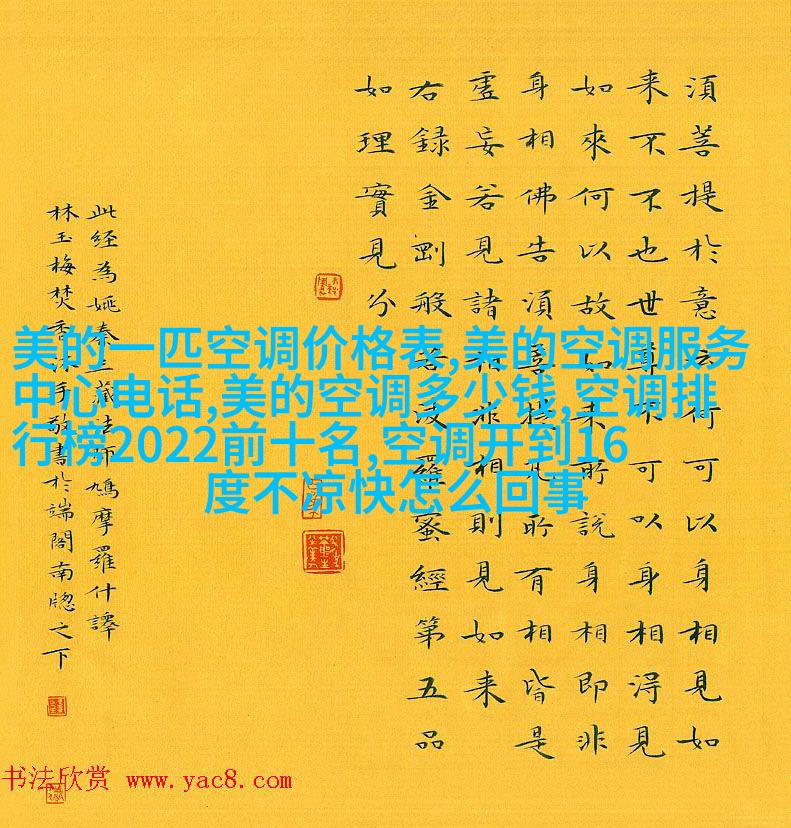 須菩提於意云何可以身相見如
来不不也世尊不可以身相得見
如來何以故如来所説身相即非
身相佛告須菩提凡所有相皆是
虛妄若見諸相非相則見如来
右録金剛般若波羅蜜經第五品
如理實見分
此经為姚秦三藏法師鳩摩羅什譯
林玉梅焚香沐手敬書於端閣南牕之下
美的一匹空调价格表,美的空调服务
中心电话,美的空调多少钱,空调排
行榜2022前十名,空调开到16
度不凉快怎么回事
书法欣赏 www.yac8.com